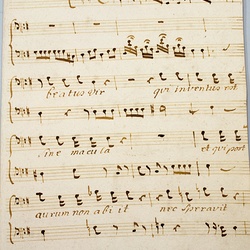 beatus vir qui inventus est
sine macula et qui post
aurum non abiit nec speravit